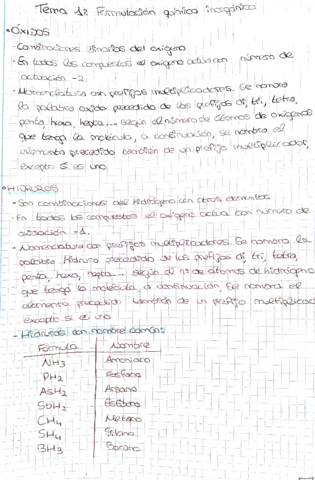 Tema 1: Formulación química inorgánica
• ÓXIDOS
- Combinaciones binarias del oxígeno
- En todos los compuestos el oxígeno actúa con número de
actuación -2.
- Nomenclatura con prefijos multiplicadores. Se nombra
la palabra oxido precedido de los prefijos di, tri, tetra,
penta, hexa, hepta... según el número de átomos de oxígenos
que tenga la molécula, a continuación, se nombra el
elemento precedido también de un prefijo multiplicador,
excepto si es uno.
• HIDRUROS
- Son combinaciones del Hidrógeno con otros elementos
- En todos los compuestos el oxígeno actúa con número de
oxidación -1.
• Nomenclatura con prefijos multiplicadores. Se nombra la
palabra Hidruro precedido de los prefijos di, tri, tetra,
penta, hexa, hepta... según el nº de átomos de hidrógeno
que tenga la molécula, a continuación, Se nombra el
elemento precedido también de un prefijo multiplicad
excepto si es uno
- Hidruros con nombre común:
Formula Nombre
NH3 Amoniaco
PH2 Fosfano
ASH2 Arsano
SbH2 Estibano
CH4 Metano
SH4 Silano
BH3 Borano